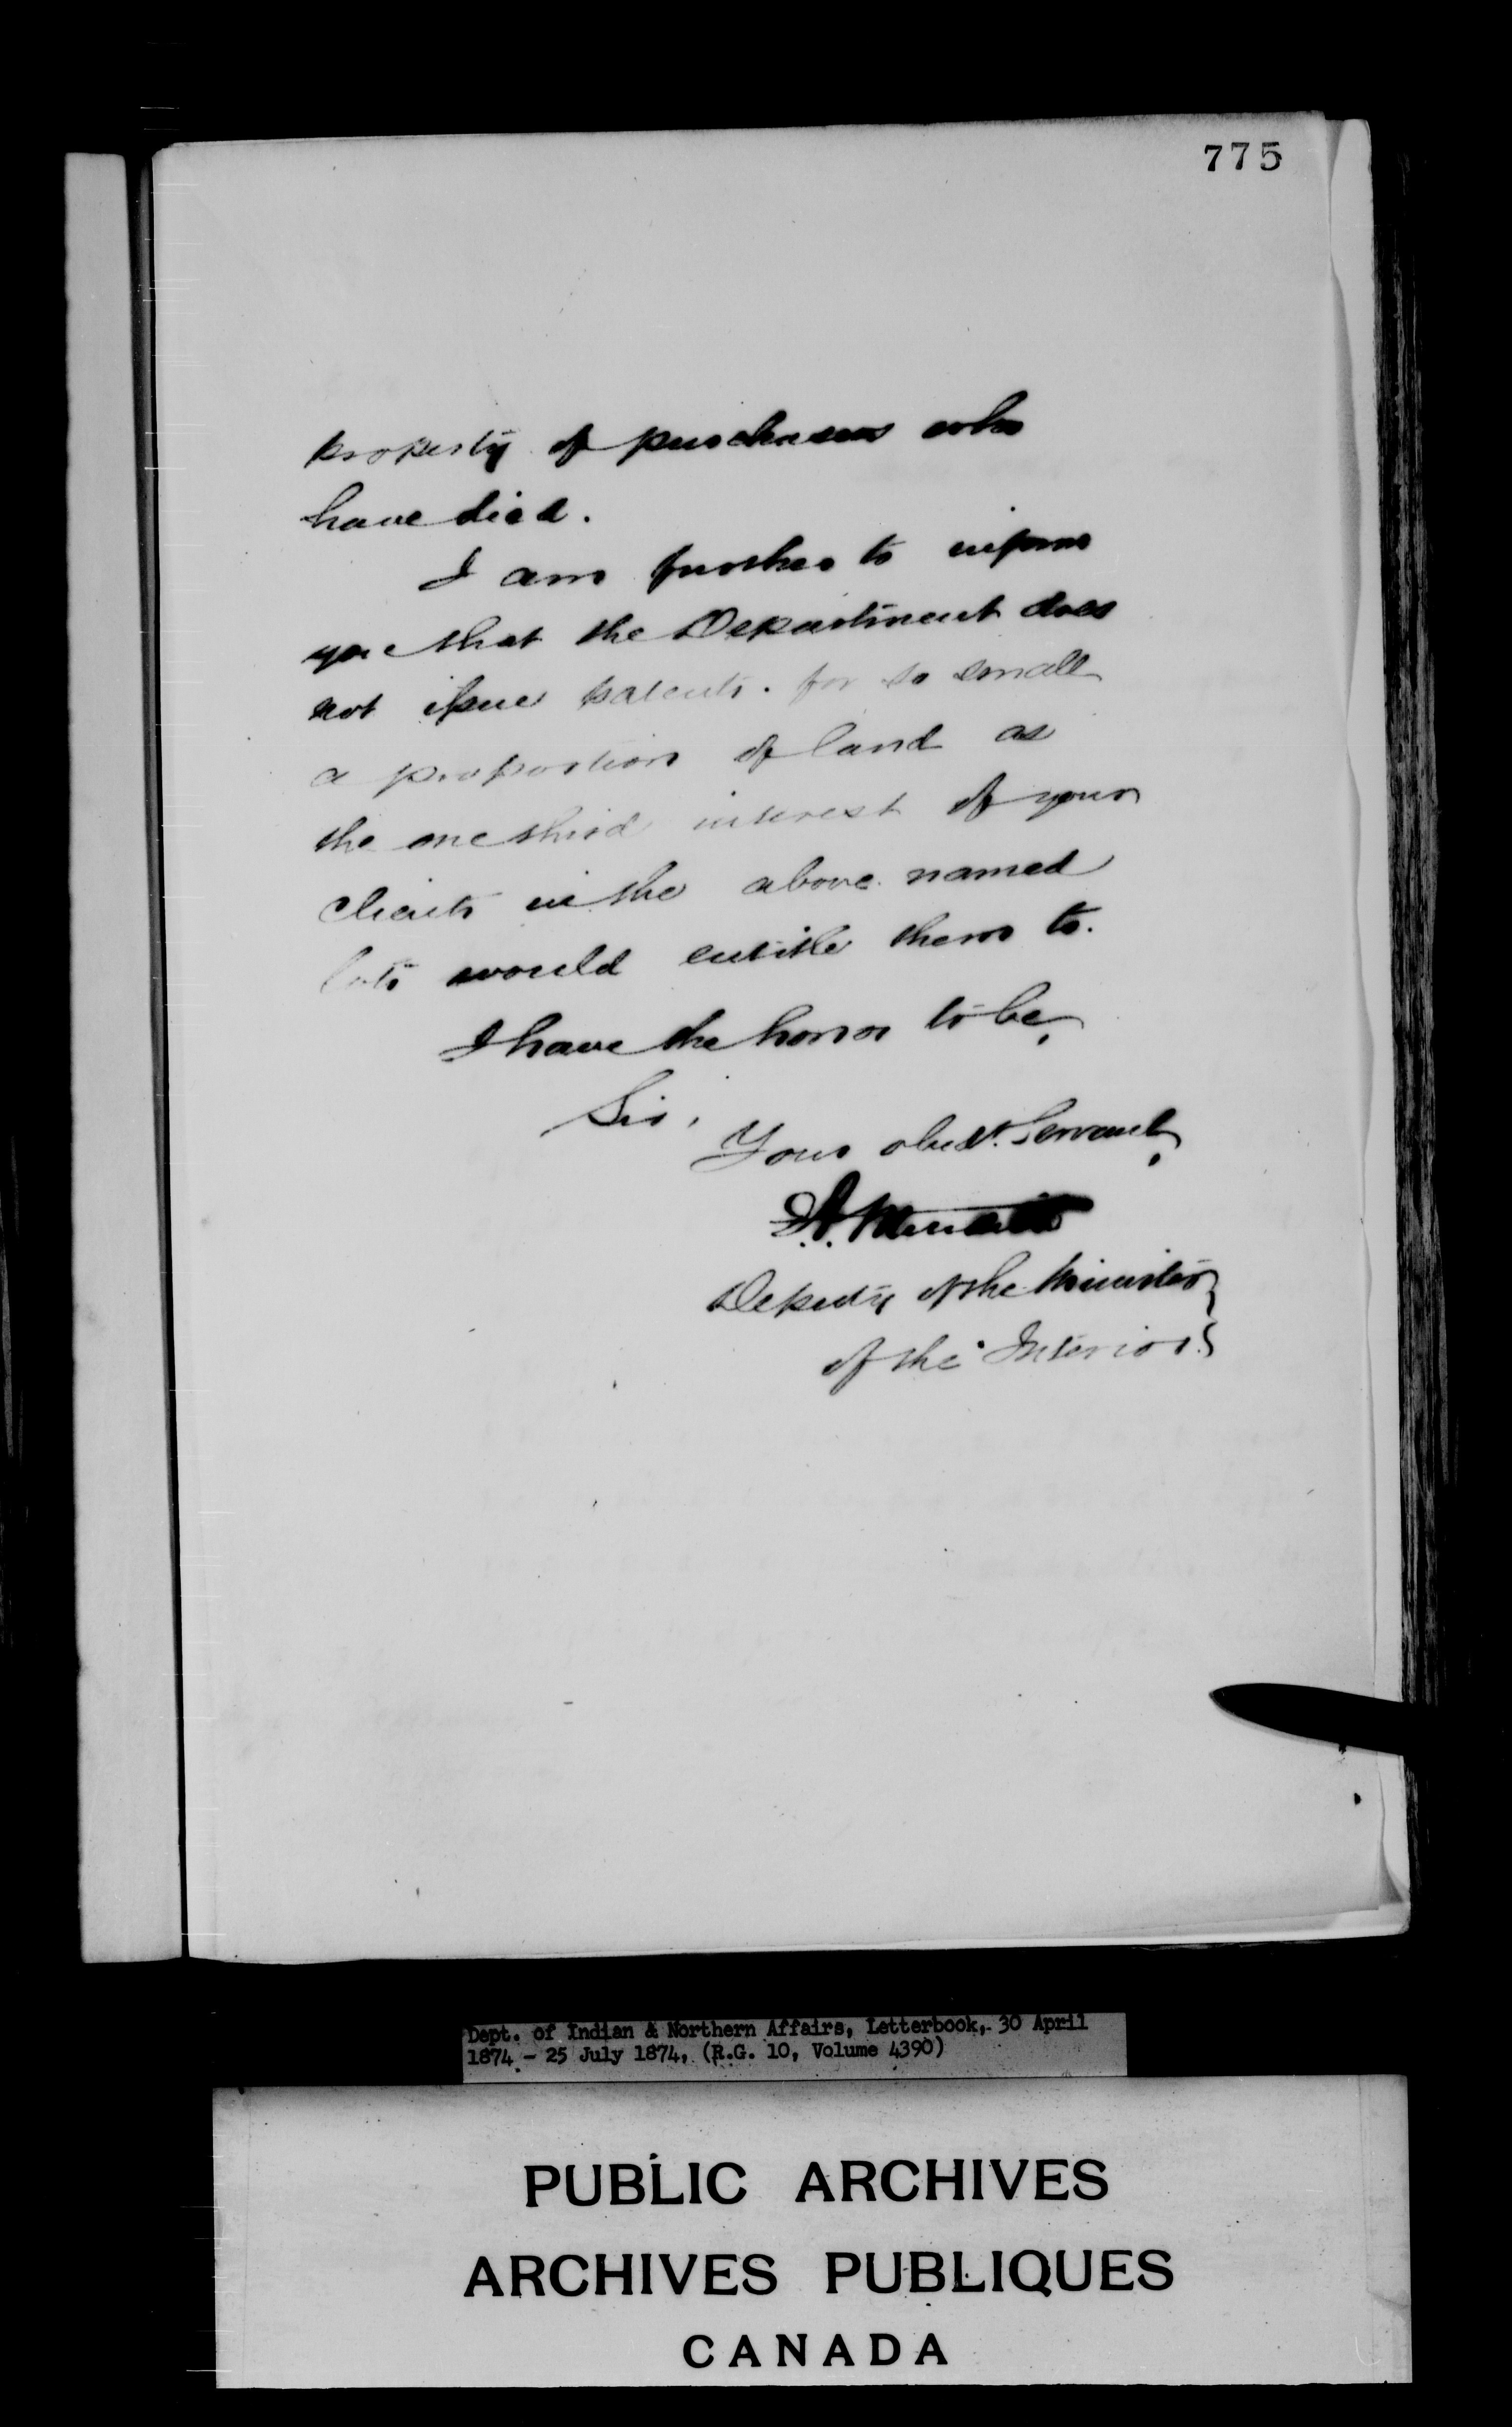 775
property of purchasers who
have died.
I am further to inform
you that the Department does
not issue patents for so small
a proportion of land as
the one third interest of your
clients in the above named
lots would entitle them to.
I have the honor to be,
Sir,
Your obedt. Servant,
Deputy of the Minister
of the Interior
Dept. of Indian & Northern Affairs, Letterbook, 30 April
1874 - 25 July 1874, (R.G. 10, Volume 4390)
PUBLIC ARCHIVES
ARCHIVES PUBLIQUES
CANADA